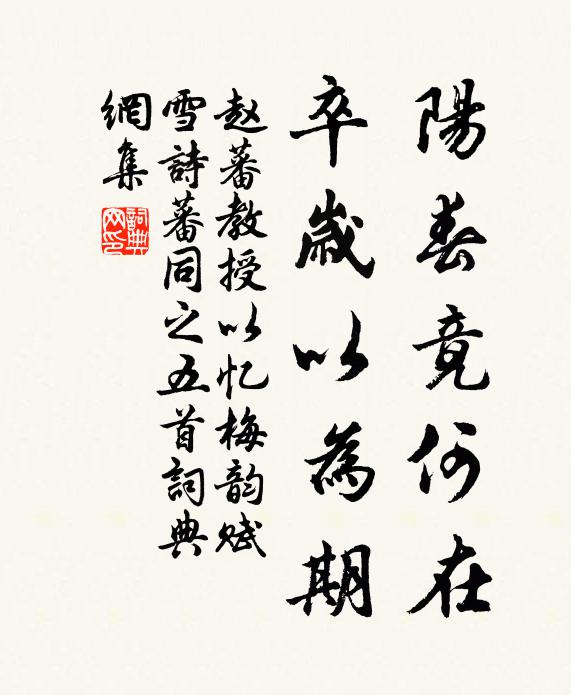 陽春竟何在
卒歲以為期
赵蕃教授以忆梅韵赋
雪詩蕃同之五首詞典
網集
詞典网印